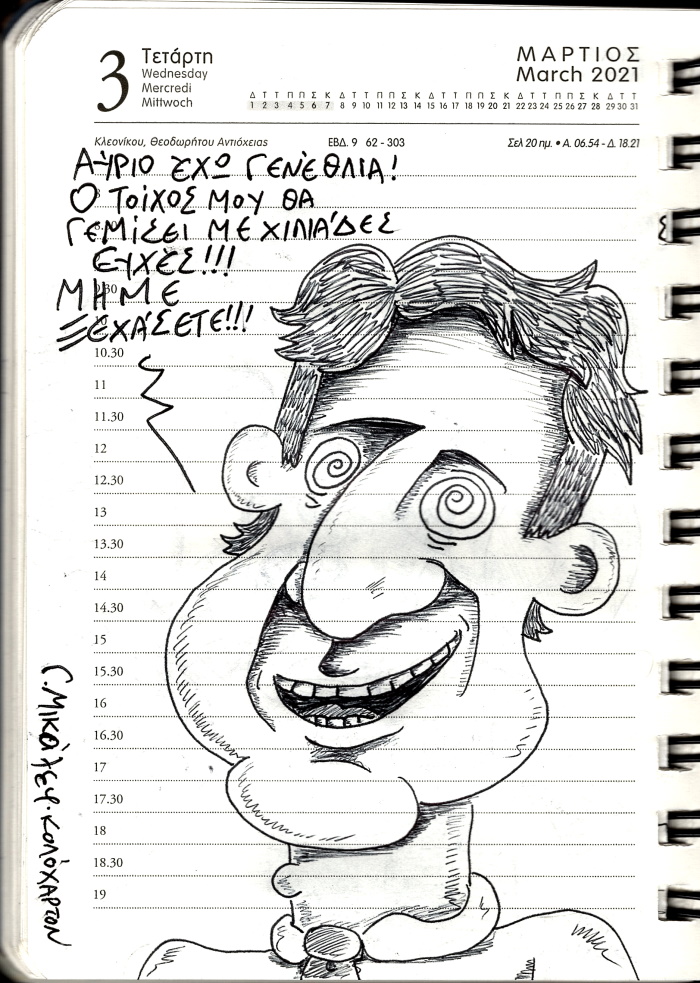 3
Τετάρτη
Wednesday
Mercredi
Mittwoch
ΜΑΡΤΙΟΣ
March 2021
Δ Τ Τ Π Π Σ Κ Δ Τ Τ Π Π Σ Κ Δ Τ Τ Π Π Σ Κ Δ Τ Τ Π Π Σ Κ Δ Τ Τ
1 2 3 4 5 6 7 8 9 10 11 12 13 14 15 16 17 18 19 20 21 22 23 24 25 26 27 28 29 30 31
Κλεονίκου, Θεοδωρήτου Αντιόχειας ΕΒΔ. 9 62 - 303 Σελ 20 ημ. • Α. 06.54 - Δ. 18.21
ΑΎΡΙΟ ΕΧΩ ΓΕΝΈΘΛΙΑ!
Ο ΤΟΊΧΟΣ ΜΟΥ ΘΑ
ΓΕΜΊΣΕΙ ΜΕ ΧΙΛΙΆΔΕΣ
ΕΥΧΈΣ!!!
ΜΗ ΜΕ
ΞΕΧΆΣΕΤΕ!!!
10.30
11
11.30
12
12.30
13
13.30
14
14.30
15
15.30
16
16.30
17
17.30
18
18.30
19